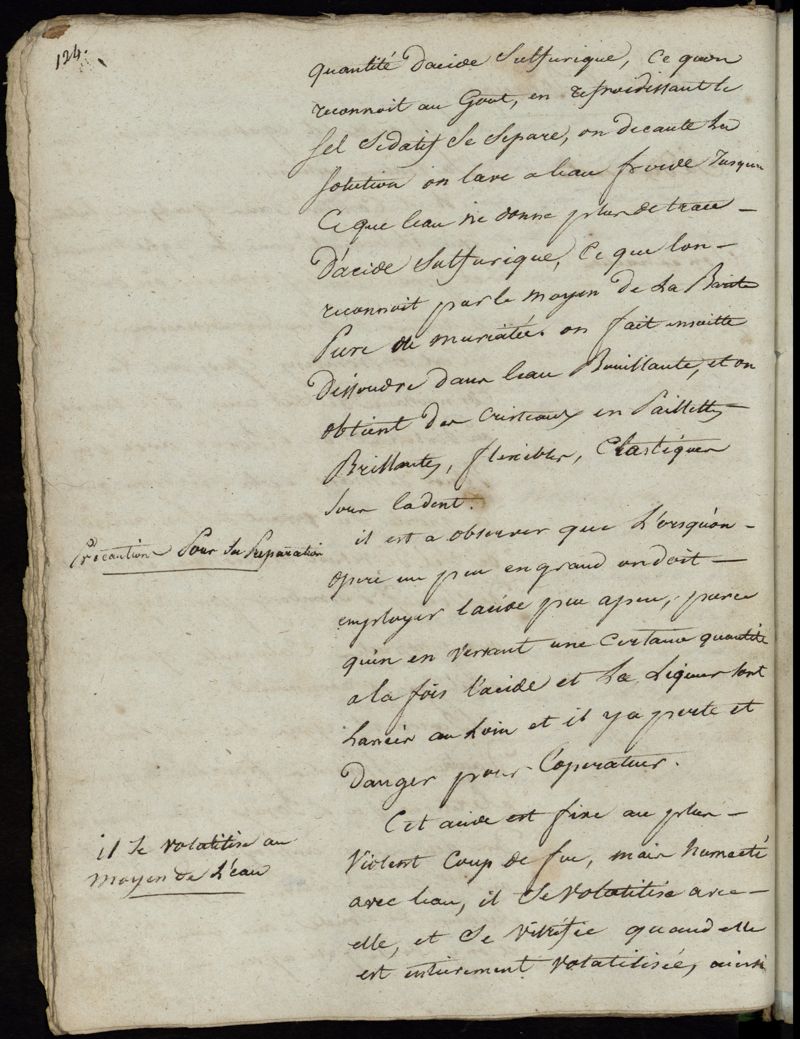 124.
quantité Dacide Sulfurique, Ce quon
reconnoit au Gout, en refroidissant le
sel Sedatif Se Separe, on decante La
solution on lave a leau froide Jusqua
Ce que leau ne donne plus de trace
D'acide Sulfurique, Ce que lon
reconnoit par le moyen de La Barite
Pure ou muriatée. on fait ensuitte
Dissoudre dans leau Bouillante, et on
obtient Des Cristeaux en Paillettes
Brillantes, flexibles, Elastiques
sous ladent.
Précautions Pour Sa Préparation
il est a observer que L'orsqu'on
opere un peu en grand on doit
employer lacide peu apeu, parce
quen en versant une Certaine quantité
a la fois l'acide et La Liqueur sont
Lancés au Loin et il y a perte et
Danger pour L'operateur.
il Se volatilise au
moyen de L'eau
Cet acide est fixe au plus
Violent Coup de feu, mais humecté
avec leau, il Se Volatilise avec
elle, et Se Vitrifie quand elle
est entierement Volatilisée, ainsi